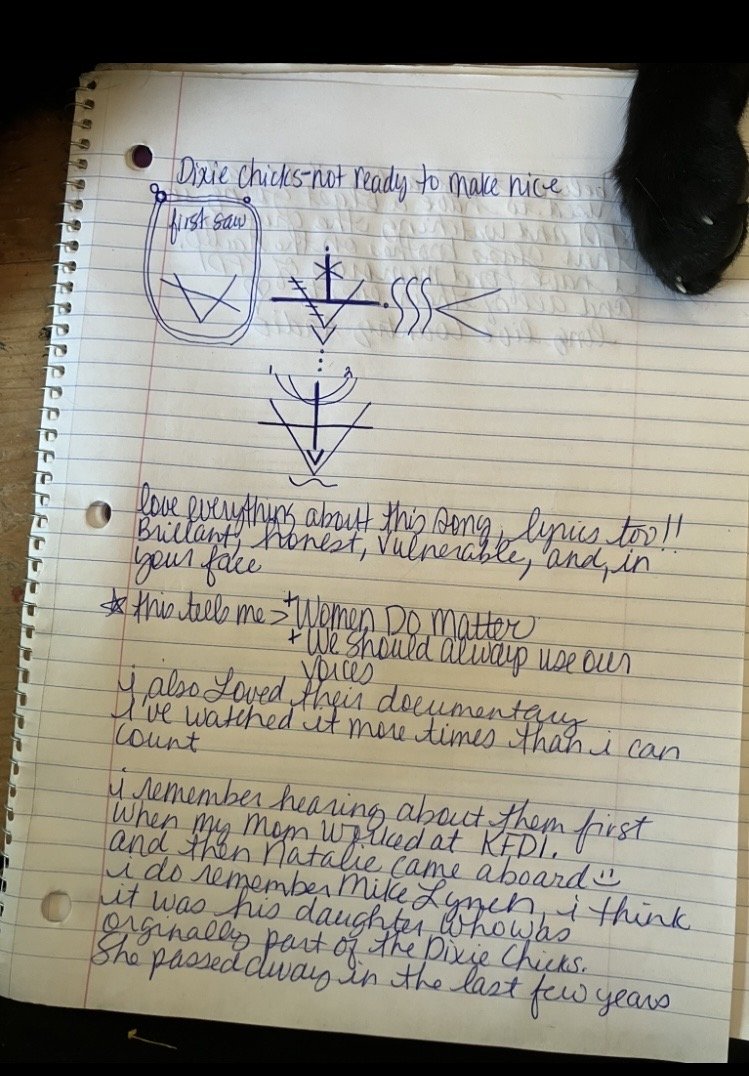 Dixie Chicks-not ready to make nice
first saw
1 2
love everything about this song, lyrics too!!
Brillant, honest, vulnerable, and, in
your face
this tells me > + Women Do Matter
+ We should always use our
voices
i also loved their documentary
i've watched it more times than i can
count
i remember hearing about them first
when my mom worked at KFDI.
and then Natalie came aboard
i do remember Mike Lynch, i think
it was his daughter who was
orginally part of the Dixie Chicks.
She passed away in the last few years